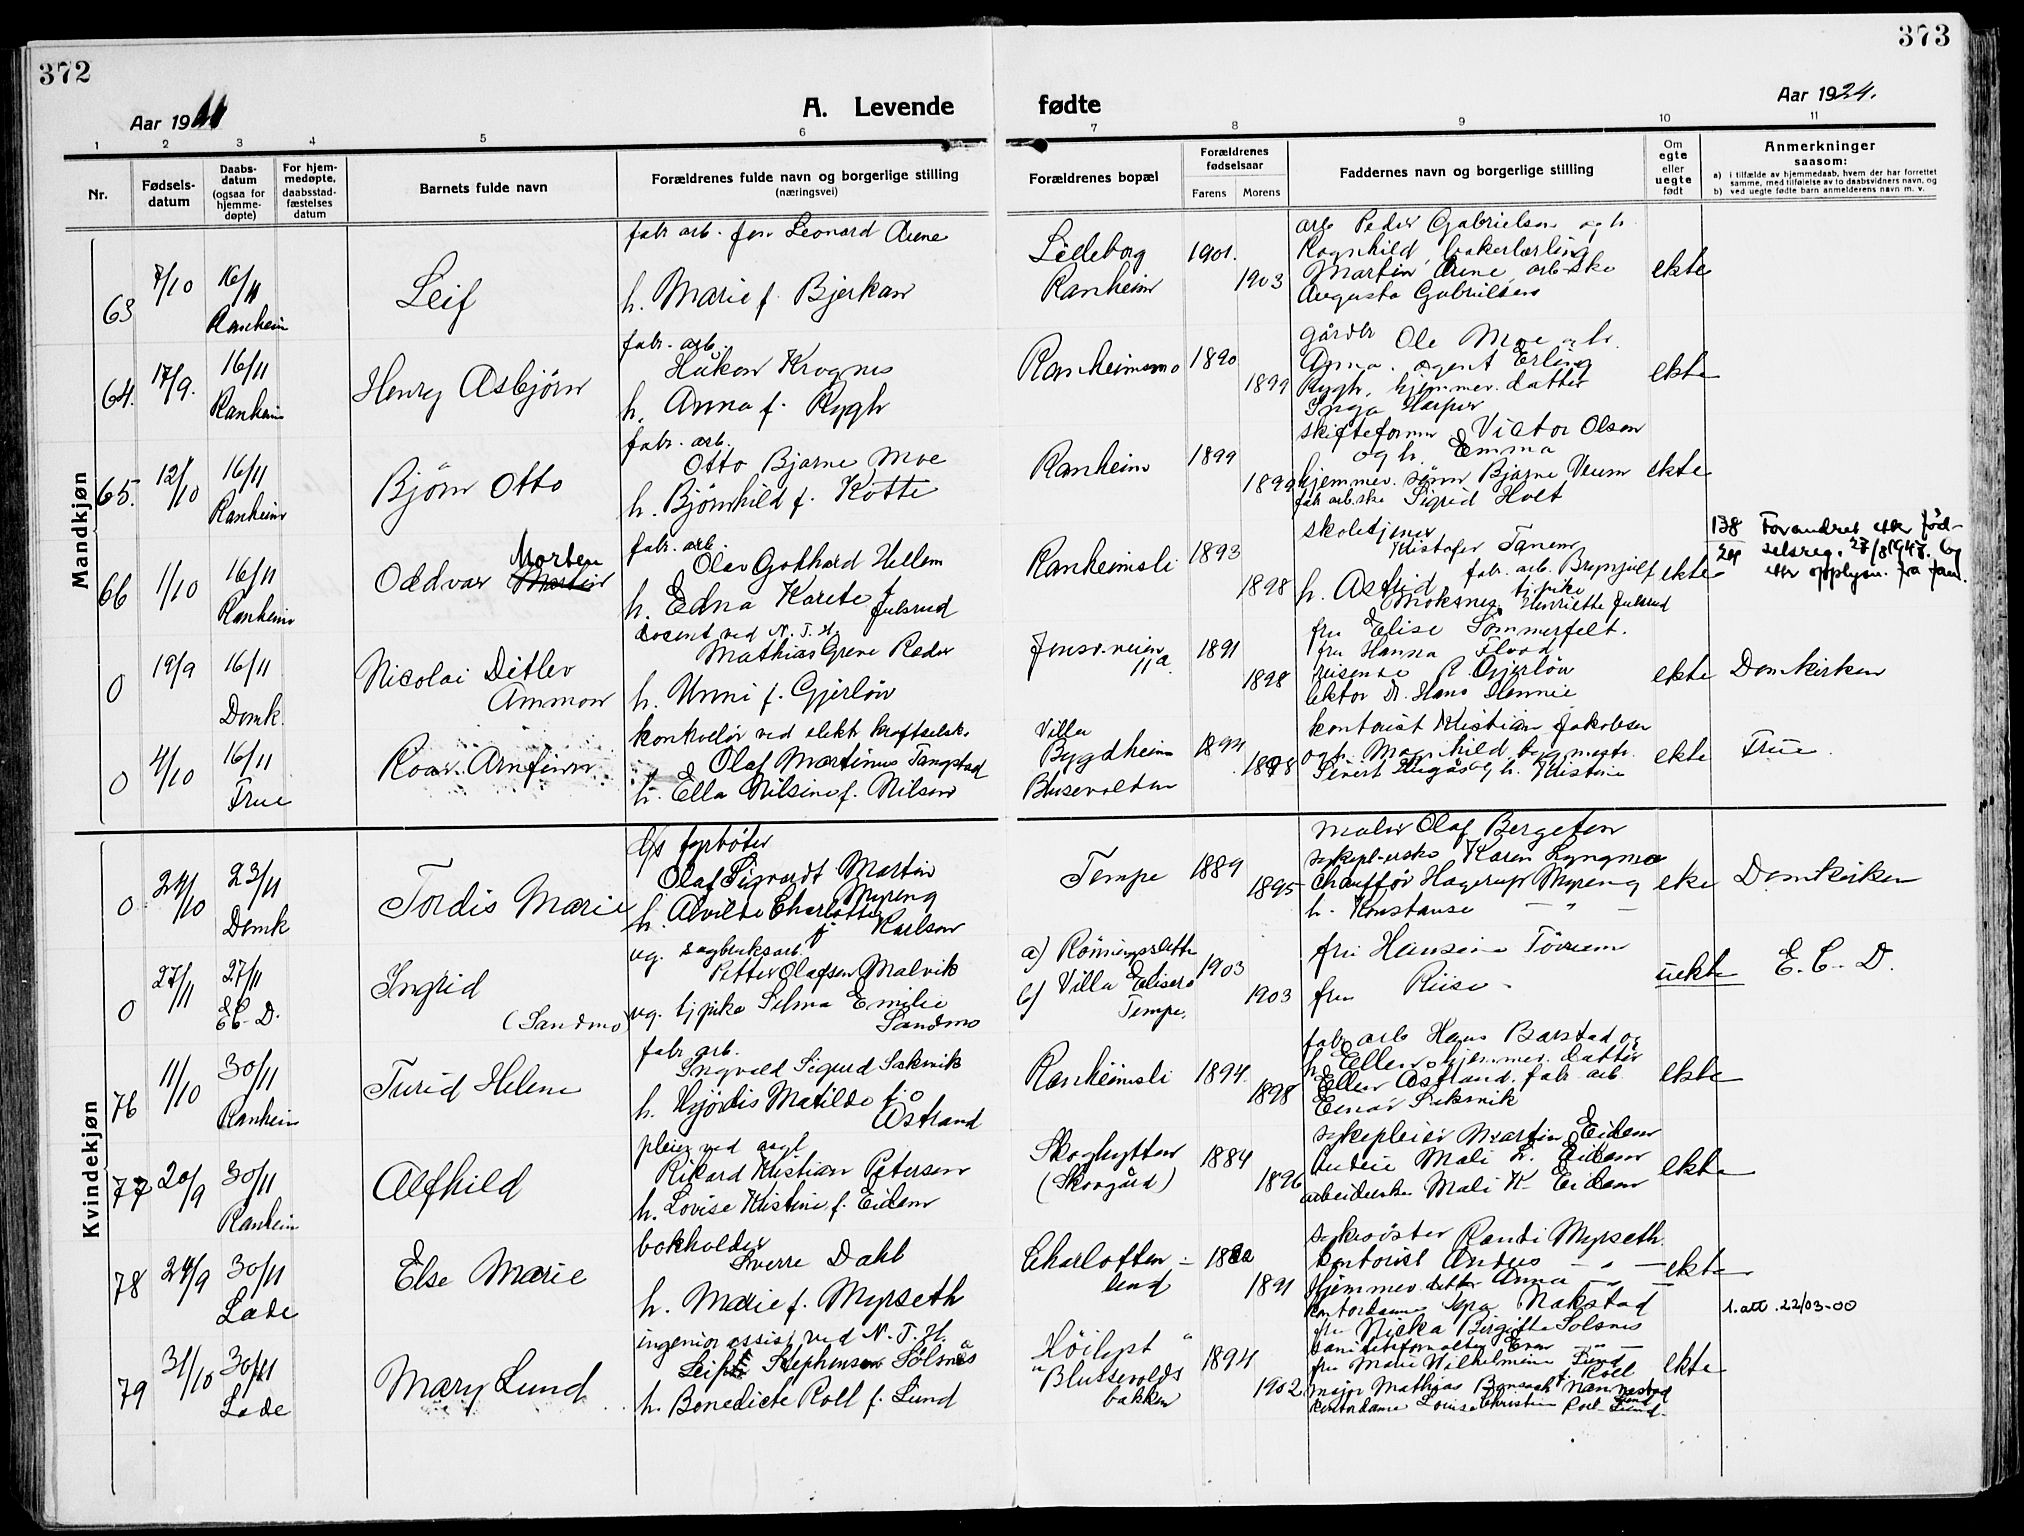 372
373
Aar 19
A. Levende fødte
Aar 1924.
1 2 3 4 5 6 7 8 9 10 11
Nr.
Fødsels-
datum
Daabs-
datum
(ogsaa for
hjemme-
døpte)
For hjem-
medøpte,
daabsstad-
fæstelses
datum
Barnets fulde navn
Forældrenes fulde navn og borgerlige stilling
(næringsvei)
Forældrenes bopæl
Forældrenes
fødselsaar
Farens Morens
Faddernes navn og borgerlige stilling
Om
egte
eller
uegte
født
Anmerkninger
saasom:
a) i tilfælde av hjemmedaab, hvem der har forrettet
samme, med tilføielse av to daabsvidners navn, og
b) ved uegte fødte barn anmelderens navn m. v.
Mandkjøn
63 7/10 16/11 Ranheim
Leif
fabr arb. Leonard
h. Marie f. Bjerkan
Ranheim
1901. 1903
arb Peder Gabrielsen og h.
Ragnhild, bakerlærling
Martin arb-ske
Augusta Gabrielsen
ekte
64. 17/9. 16/11 Ranheim
Henry Asbjørn
fabr. arb.
Håkon Krognes
h. Anna f. Rygh
Ranheimsmo
1890 1899
gårdbr Ole Moe
Anna. agent Erling
Rygh, hjemmev. datter
Inga
ekte
65. 12/10 16/11 Ranheim
Bjørn Otto
fabr. arb.
Otto Bjarne Moe
h. Bjørnhild f. Kotte
Ranheim
1899 1899
skifteformn Victor Olsen
og h. Emma
hjemmev. sønn Bjarne
fabr arb.ske Sigrid Holt
ekte
66 1/10 16/11 Ranheim
Morten
Oddvar Martin
fabr. arb.
Olav Godthard Hellem
h. Edna Karete f
Julsrud
Ranheimsli
1893 1898
skoletjener
Kristofer Tanem
h. Astrid fabr. arb. Brynjulf
Moksnes, Henriette Julsrud
ekte
138 Forandret etter fød-
selsreg.
etter opplysn. fra
0 19/9 16/11 Domk.
Nicolai Ditlev
Ammon
docent ved N. T. H.
Mathias Greve Reder
h. Unni f. Gjerløw
11a
1891 1898
fru Elise Sommerfelt.
fru Hanna Flood
reisende Gjerløw
lektor Dr. Hans
ekte
Domkirken
0 4/10 16/11 True
Roar Arnfinn
kontrolør ved elektr kraftselsk.
Olaf Martinus Tangstad
h. Ella Nilsine f. Nilsen
Villa
Bygdheim
Blusevolden
1894 1898
kontorist Kristian Jakobsen
og h. Magnhild
Sivert og h. Kristine
ekte
True.
Kvindekjøn
0 24/10 23/11 Domk
Tordis Marie
fyrbøter
Olaf Sigvardt Martin
Myreng
h. Alvilde Charlotte
f Karlson
Tempe
1889 1895
maler Olaf Bergeton
Karen Lyngmo
Chauffør Hagerup Myreng
h. Konstanse — " —
ekte
Domkirken
0 27/11 27/11 E. C. D.
Ingrid
(Sandmo)
ug. sagbruksarb.
Petter Olafsen Malvik
ug. tj pike Selma Emilie
Sandmo
a) Rønningsletta
b) Villa Elisero
Tempe.
1903 1903
fru Hansine
fru Riise
uekte
E. C. D.
76 11/10 30/11 Ranheim
Turid Helene
fabr arb.
Ingvald Sigurd Saksvik
h. Hjørdis Matilde f.
Åstrand
Ranheimsli
1894. 1898
fabr arb Hans Barstad og
h. Ellen, hjemmev. datter
Ellen Åstrand. fabr arb
Einar Saksvik
ekte
77 20/9 30/11 Ranheim
Alfhild
pleier ved
Rikard Kristian Petersen
h. Lovise Kristine f. Eidem
Skoghytten
(Skovgård)
1884 1896
sykepleier Martin Eidem
Mali L. Eidem
arbeiderske Mali K. Eidem
ekte
78 24/9 30/11 Lade
Else Marie
bokholder
Sverre Dahl
h. Marie f. Myrseth
Charlotten-
lund
1891
Randi Myrseth
kontorist — " —
hjemmev. datter Anna — " —
kontordame Nakstad
ekte
1. att. 22/03-00
79 31/10 30/11 Lade
Mary Lund
ingeniør assist ved N. T. H.
Leif Stephensen Solsnes
h. Benedicte Roll f. Lund
Høilyst
"Blussevolds
bakken
1894 1902
fru Nicka Birgitte Solsnes
fru Marie Wilhelmine Lund
Roll
major Mathias Nannestad
kontordame Louise Christine Roll-Lund
ekte